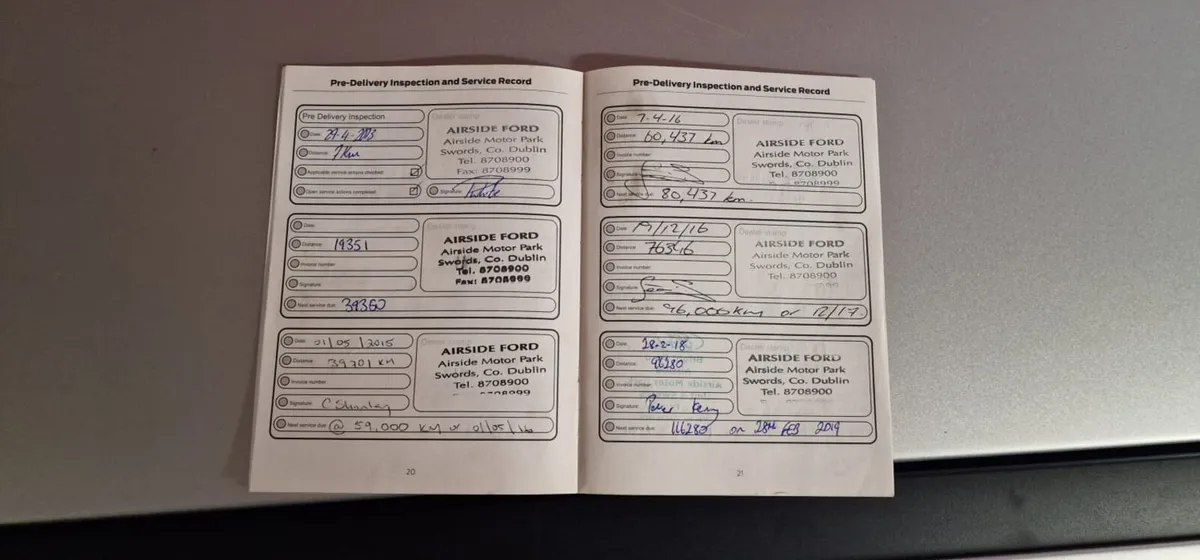 Pre-Delivery Inspection and Service Record
Pre Delivery Inspection
Date: 29-4-2013
Distance: 7 km
Applicable service actions checked
Open service actions completed
Signature
Dealer stamp
AIRSIDE FORD
Airside Motor Park
Swords, Co. Dublin
Tel. 8708900
Fax: 8708999
Date:
Distance: 19351
Invoice number:
Signature:
Next service due: 39350
AIRSIDE FORD
Airside Motor Park
Swords, Co. Dublin
Tel. 8708900
Fax: 8708999
Date: 01/05/2015
Distance: 39701 KM
Invoice number:
Signature:
Next service due: @ 59,000 KM or 01/05/16
Dealer stamp
AIRSIDE FORD
Airside Motor Park
Swords, Co. Dublin
Tel. 8708900
20
Pre-Delivery Inspection and Service Record
Date: 7-4-16
Distance: 60,437 km
Invoice number:
Signature:
Next service due: 80,437 km.
Dealer stamp
AIRSIDE FORD
Airside Motor Park
Swords, Co. Dublin
Tel. 8708900
Date: 19/12/16
Distance: 76346
Invoice number:
Signature:
Next service due: 96,000KM or 12/17.
Dealer stamp
AIRSIDE FORD
Airside Motor Park
Swords, Co. Dublin
Tel. 8708900
Date: 28-2-18
Distance: 96280
Invoice number:
Signature: Peter Kenny
Next service due: 116280 on 28th FEB 2019
Dealer stamp
AIRSIDE FORD
Airside Motor Park
Swords, Co. Dublin
Tel. 8708900
21